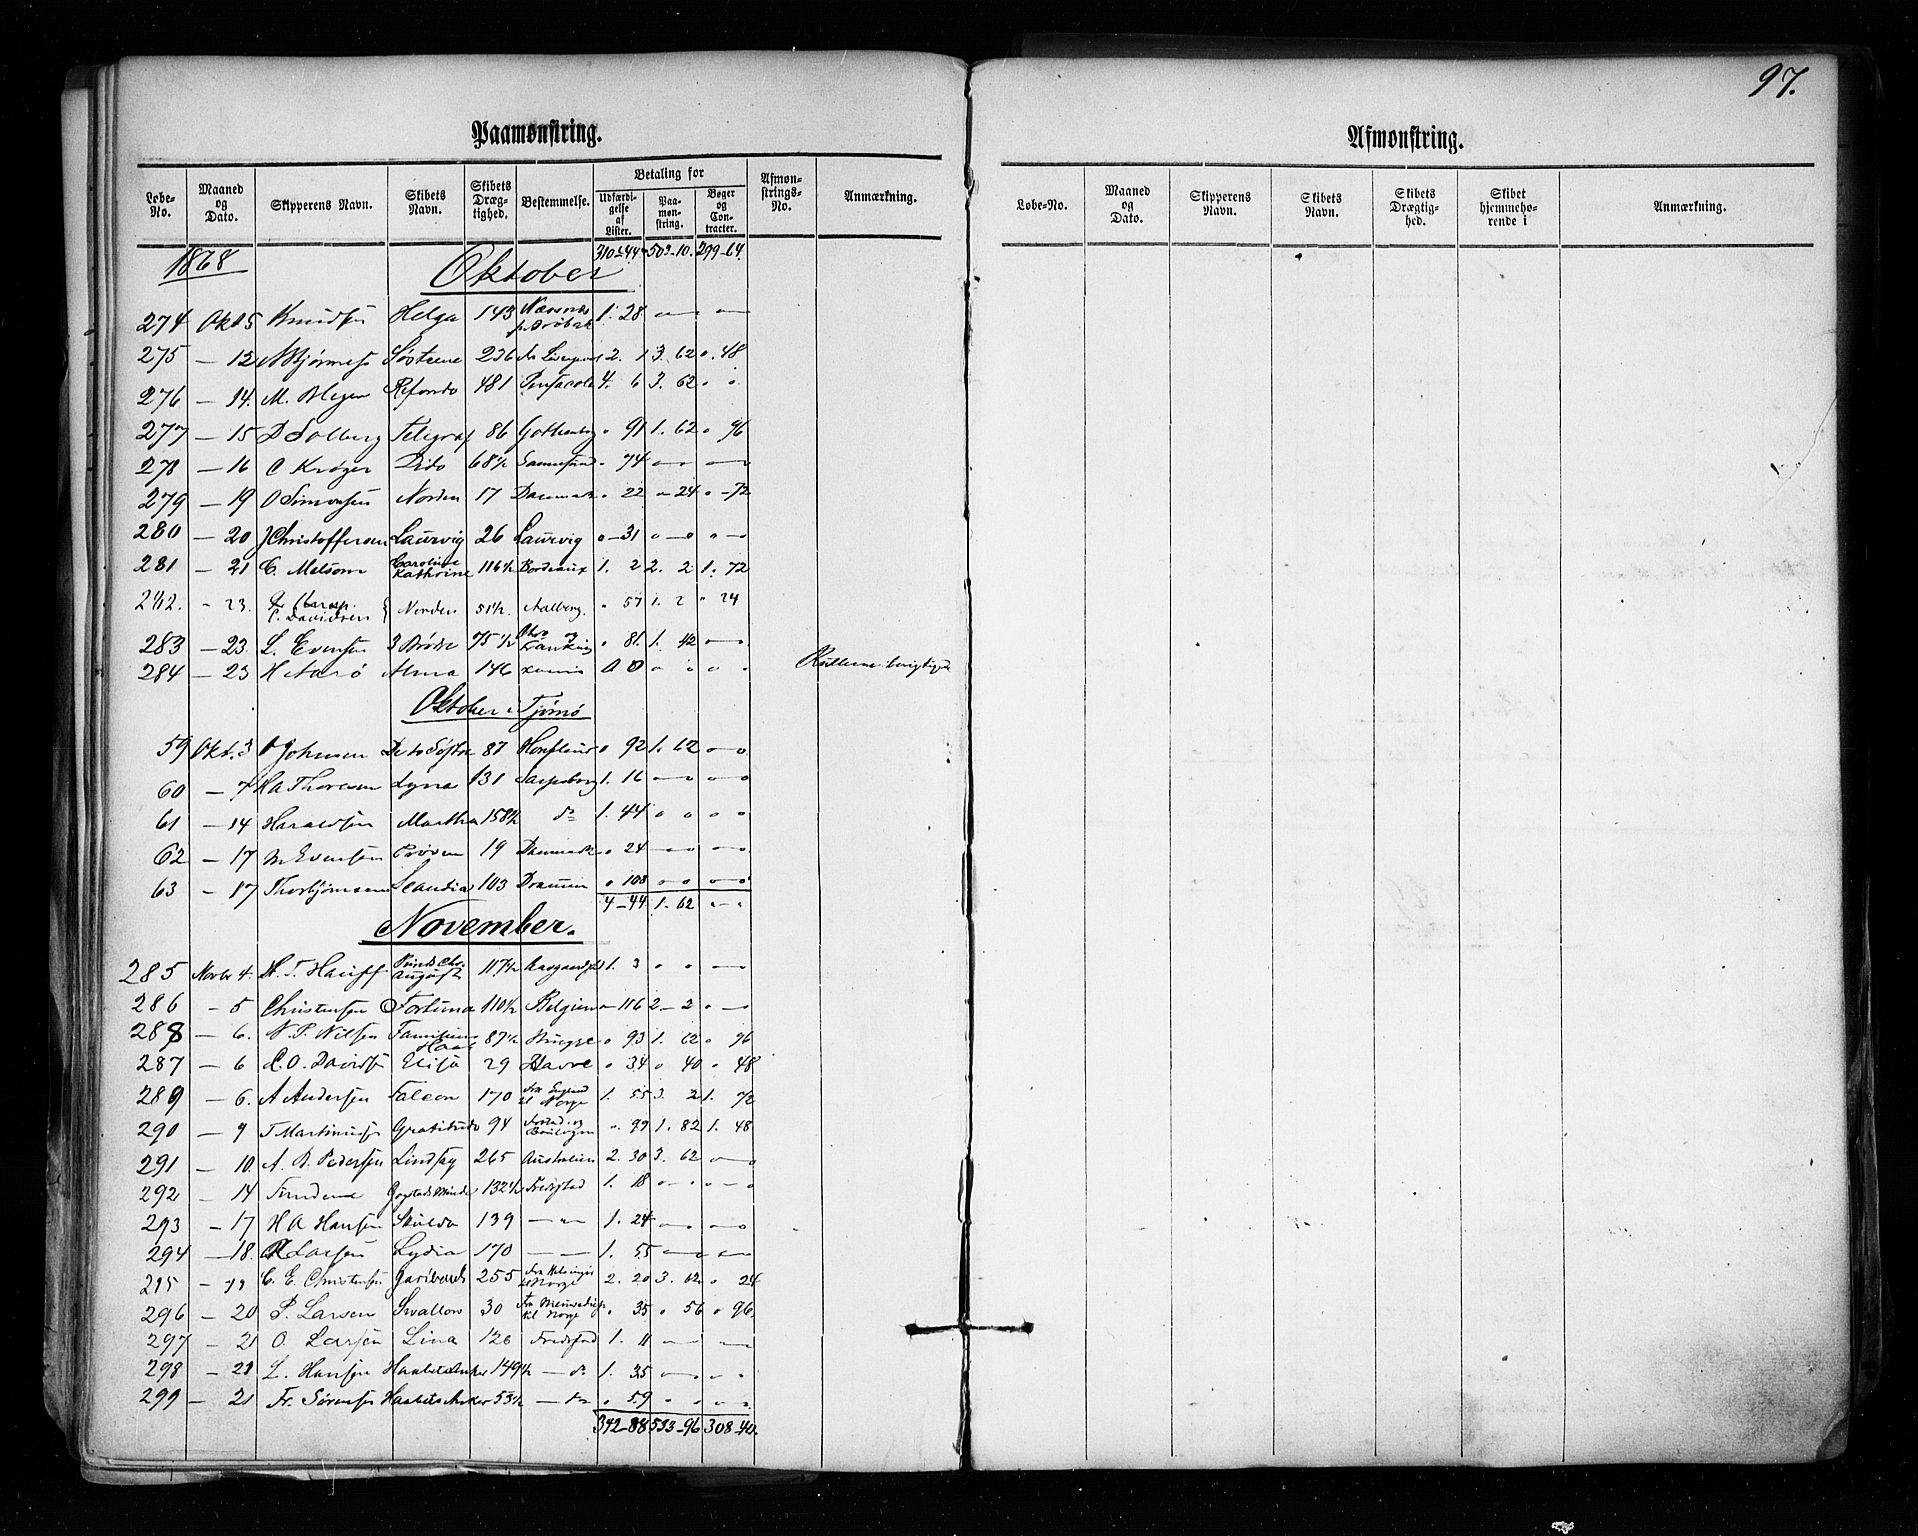 97.
Paamønstring.
Løbe-No. Maaned og Dato. Skipperens Navn. Skibets Navn. Skibets Drægtighed. Bestemmelse. Betaling for Udfærdigelse af Lister. Paamønstring. Bøger og Contracter. Afmønstrings-No. Anmærkning.
310-44 503-10. 299-64.
1868 Oktober
274 Okt 5 Knudsen Helga 143 1. 28 — —
275 — 12 Søstrene 236 2. 1 3. 62 0. 48
276 — 14. M. Blegen 481 Pensacola 4. 6 3. 62 0 0
277 — 15 D Solberg Telegraf 86 Gothenborg 0 91 1. 62 0 96
278 — 16 C Krøger Dido 68½ 0 74 — —
279 — 19 O Simonsen Norden 17 Danmark 0 22 0 24 0 72
280 — 20 J Christoffersen Laurvig 26 Laurvig 0-31 0-0 0-0
281 — 21 C. Melsom Caroline Kathrine 116½ Bordeaux 1. 2 2. 2 1. 72
282. - 23. C. Davidsen Norden 51½. Aalborg. 0 57 1. 2 0 24
283 — 23. L. Evensen 3 Brødre 75½ 0 81. 1. 42 0-0
284 — 23 H Aarø Alma 146 0 0 0 0 0 0
Oktober i Tjømø
59 Okt. 3 Johnsen De to Søstre 87 Honfleur 0 92 1. 62 0-0
60 — 7 H A Thoresen 131 Sarpsborg 1. 16 0-0 0-0
61 — 14 Haraldsen Martha 158½ do 1. 44 0 0 0 0
62 — 17 M Evensen Prøven 19 Danmark 0 24 — —
63 — 17 Thorbjørnsen Scandia 103 Drammen 0 108 0 0 0-0
4-44 1. 62 0-0
November.
285 Novbr 4. H. T. Hauff August 117½ 1. 3 0 0 —
286 - 5 Christensen Fortuna 110½ Belgien 0-116 2-2 0-0
288 — 6. N. P. Nilsen Familiens Haab 87½ Brügge 0 93 1. 62 0 96
287 — 6 C. O. Davidsen Elisa 29 Havre 0 34 0 40 0 48
289 — 6. A Andersen Falcon 170 fra England til Norge 1. 55 3. 2 1. 72
290 — 9 T Martinusen Gratitude 94 0. 99 1. 82 1. 48
291 — 10. A. B. Pedersen Lindsay 265 Australien 2. 30 3. 62 0-0
292 — 14 132½ Fredstad 1. 18 0-0 0-0
293 — 17 H A Hansen Skulda 139 — 1. 24 0-0 0-0
294 — 18. Larsen Lydia 170 — 1. 55 — —
295 — 19 C. E. Christensen Garibaldi 255 Fra Helsingør til Norge 2. 20 3. 62 0 24
296 — 20 P. Larsen Swallow 30 til Norge 0 35 0 56 0 96
297 — 21 O. Larsen Lina 126 Fredstad 1. 11 — —
298 — 21 L. Hansen Haabets Anker 149½ — do 1. 35 0-0 0-0
299 — 21 Fr. Sørensen Haabets Anker 53½ — do 0 59 0 0 0 0
342-88 533-96 308-40.
Afmønstring.
Løbe-No. Maaned og Dato. Skipperens Navn. Skibets Navn. Skibets Drægtighed. Skibet hjemmehørende i Anmærkning.